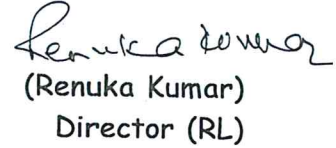 Renuka Kumar
(Renuka Kumar)
Director (RL)